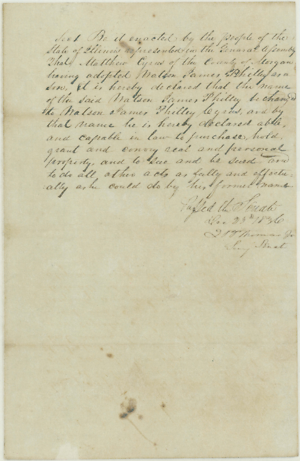 Sect Be it enacted by the people of the
State of Illinois represented in the General Assembly
That Matthew Cyrus of the County of Morgan
having adopted Watson James Philley as a
son, it is hereby declared that the name
of the said Watson James Philley be changed
to Watson James Philley Cyrus, and by
that name he is hereby declared able
and capable in law to purchase hold,
grant and convey real and personal
property, and to sue and be sued and
to do all other acts as fully and effectu-
ally as he could do by his former name
Passed the Senate
Dec 23rd 1836